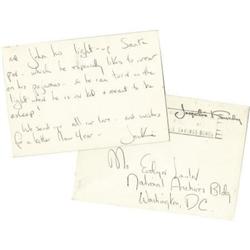 and John his light-up Santa
pin - which he especially likes to wear
on his pajamas - so he can turn on the
light when he is in bed & meant to be
asleep!
We send you all our love - and wishes
for a better New Year -
Jackie
Jacqueline Kennedy
Mrs Evelyn Lincoln
National Archives Bldg
Washington, D.C.